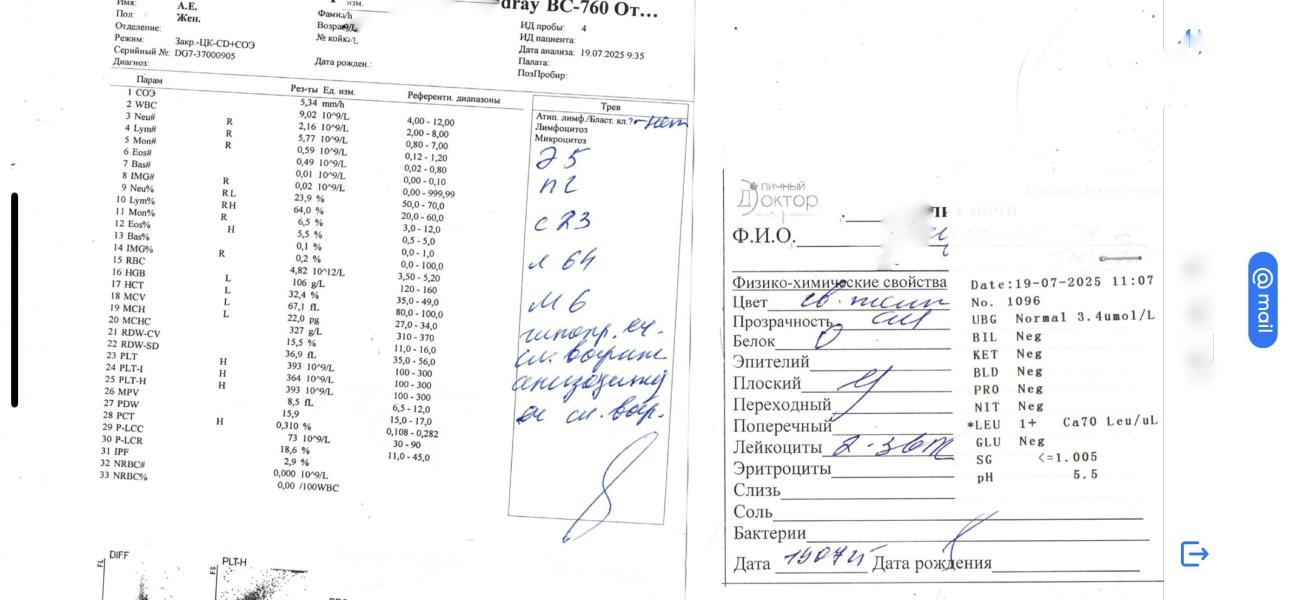 dray BC-760 От…
Имя: А.Е.
Пол: Жен.
Отделение:
Режим: Закр.-ЦК-CD+СОЭ
Серийный №: DG7-37000905
Диагноз:
изм.
Возра
№ койк
Дата рожден.:
ИД пробы: 4
ИД пациента:
Дата анализа: 19.07.2025 9:35
Палата:
ПозПробир:
Парам Рез-ты Ед. изм. Референтн. диапазоны
1 СОЭ 5,34 mm/h
2 WBC 9,02 10^9/L 4,00 - 12,00
3 Neu# R 2,16 10^9/L 2,00 - 8,00
4 Lym# R 5,77 10^9/L 0,80 - 7,00
5 Mon# R 0,59 10^9/L 0,12 - 1,20
6 Eos# 0,49 10^9/L 0,02 - 0,80
7 Bas# 0,01 10^9/L 0,00 - 0,10
8 IMG# R 0,02 10^9/L 0,00 - 999,99
9 Neu% R L 23,9 % 50,0 - 70,0
10 Lym% R H 64,0 % 20,0 - 60,0
11 Mon% R 6,5 % 3,0 - 12,0
12 Eos% H 5,5 % 0,5 - 5,0
13 Bas% 0,1 % 0,0 - 1,0
14 IMG% R 0,2 % 0,0 - 100,0
15 RBC 4,82 10^12/L 3,50 - 5,20
16 HGB L 106 g/L 120 - 160
17 HCT L 32,4 % 35,0 - 49,0
18 MCV L 67,1 fL 80,0 - 100,0
19 MCH L 22,0 pg 27,0 - 34,0
20 MCHC 327 g/L 310 - 370
21 RDW-CV 15,5 % 11,0 - 16,0
22 RDW-SD 36,9 fL 35,0 - 56,0
23 PLT H 393 10^9/L 100 - 300
24 PLT-I H 364 10^9/L 100 - 300
25 PLT-H H 393 10^9/L 100 - 300
26 MPV 8,5 fL 6,5 - 12,0
27 PDW 15,9 15,0 - 17,0
28 PCT H 0,310 % 0,108 - 0,282
29 P-LCC 73 10^9/L 30 - 90
30 P-LCR 18,6 % 11,0 - 45,0
31 IPF 2,9 %
32 NRBC# 0,000 10^9/L
33 NRBC% 0,00 /100WBC
Трев
Атип. лимф./Бласт. кл.? - нет
Лимфоцитоз
Микроцитоз
Э 5
п 2
с 23
л 64
М 6
DIFF
FL
PLT-H
FS
Личный
Доктор
Ф.И.О.
Физико-химические свойства
Цвет
Прозрачность
Белок 0
Эпителий
Плоский
Переходный
Поперечный
Лейкоциты 2-3
Эритроциты
Слизь
Соль
Бактерии
Дата 190725 Дата рождения
Date:19-07-2025 11:07
No. 1096
UBG Normal 3.4umol/L
BIL Neg
KET Neg
BLD Neg
PRO Neg
NIT Neg
*LEU 1+ Ca70 Leu/uL
GLU Neg
SG <=1.005
pH 5.5
@mail